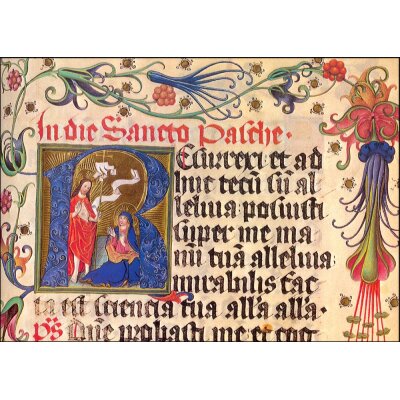 In die Sancto Pasche·
Resurrexi et ad
huc tecū sū al
leluia posuisti
super me ma
nū tuā alleluia
mirabilis fac
ta est sciencia tua all'a all'a.
Ps Dn̄e probasti me et cog